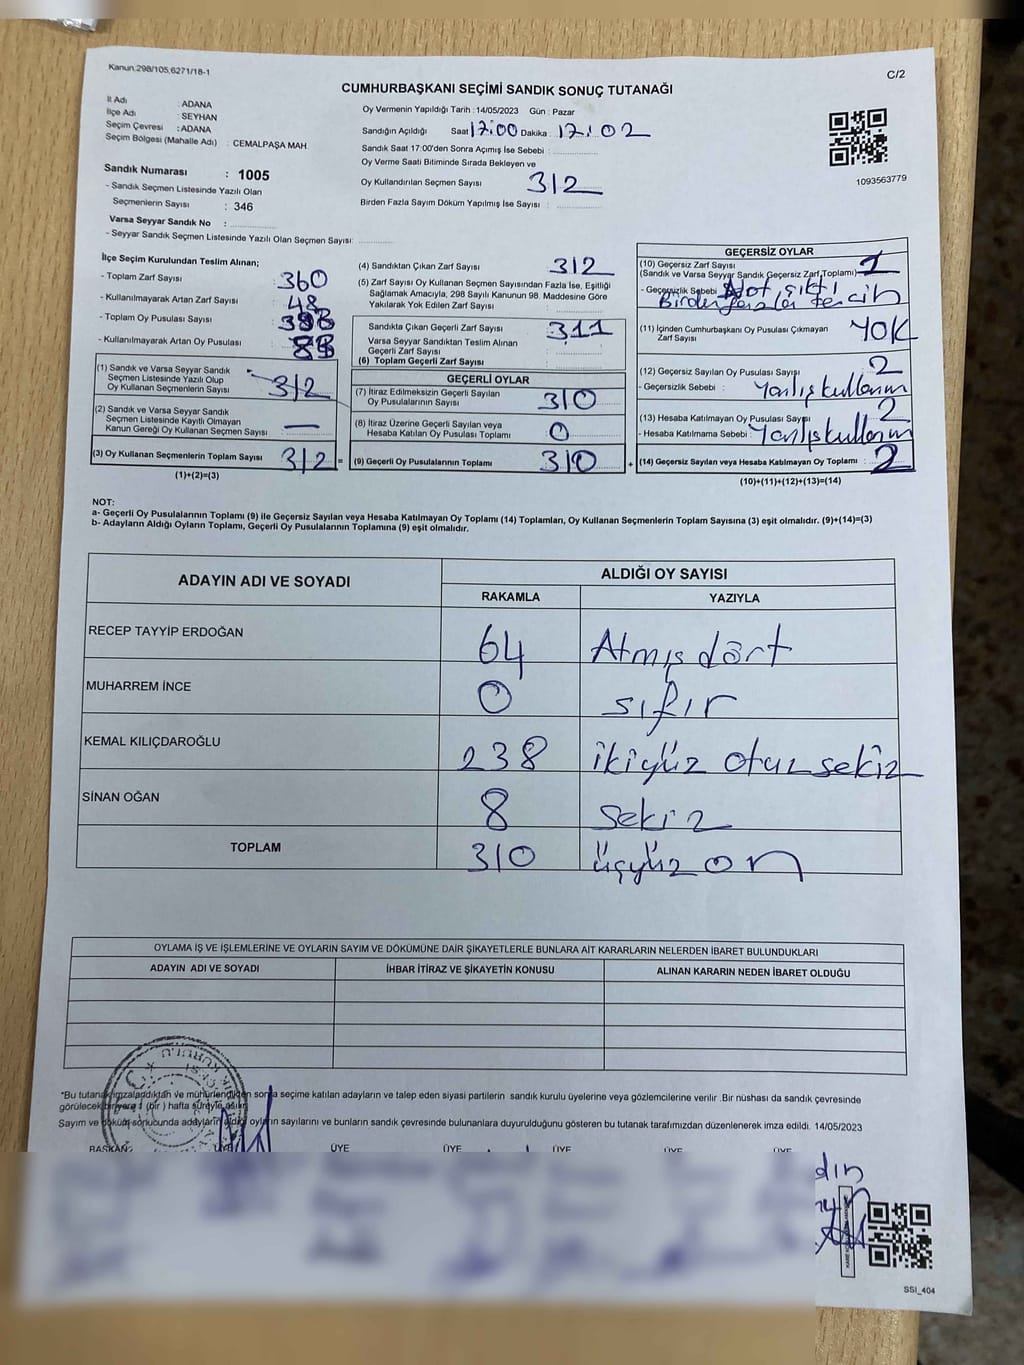 Kanun.298/105,6271/18-1
C/2
CUMHURBAŞKANI SEÇİMİ SANDIK SONUÇ TUTANAĞI
İl Adı : ADANA
İlçe Adı : SEYHAN
Seçim Çevresi : ADANA
Seçim Bölgesi (Mahalle Adı) : CEMALPAŞA MAH
Sandık Numarası : 1005
- Sandık Seçmen Listesinde Yazılı Olan
Seçmenlerin Sayısı : 346
Varsa Seyyar Sandık No :
- Seyyar Sandık Seçmen Listesinde Yazılı Olan Seçmen Sayısı:
Oy Vermenin Yapıldığı Tarih :14/05/2023 Gün : Pazar
Sandığın Açıldığı Saat 17:00 Dakika : 17:02
Sandık Saat 17:00'den Sonra Açımış İse Sebebi :
Oy Verme Saati Bitiminde Sırada Bekleyen ve
Oy Kullandırılan Seçmen Sayısı 312
Birden Fazla Sayım Döküm Yapılmış İse Sayısı :
1093563779
İlçe Seçim Kurulundan Teslim Alınan;
- Toplam Zarf Sayısı : 360
- Kullanılmayarak Artan Zarf Sayısı : 48
- Toplam Oy Pusulası Sayısı :
- Kullanılmayarak Artan Oy Pusulası :
(1) Sandık ve Varsa Seyyar Sandık
Seçmen Listesinde Yazılı Olup
Oy Kullanan Seçmenlerin Sayısı : 312
(2) Sandık ve Varsa Seyyar Sandık
Seçmen Listesinde Kayıtlı Olmayan
Kanun Gereği Oy Kullanan Seçmen Sayısı : —
(3) Oy Kullanan Seçmenlerin Toplam Sayısı : 312 =
(1)+(2)=(3)
(4) Sandıktan Çıkan Zarf Sayısı : 312
(5) Zarf Sayısı Oy Kullanan Seçmen Sayısından Fazla İse, Eşitliği
Sağlamak Amacıyla, 298 Sayılı Kanunun 98. Maddesine Göre
Yakılarak Yok Edilen Zarf Sayısı :
Sandıkta Çıkan Geçerli Zarf Sayısı : 311
Varsa Seyyar Sandıktan Teslim Alınan
Geçerli Zarf Sayısı :
(6) Toplam Geçerli Zarf Sayısı :
GEÇERLİ OYLAR
(7) İtiraz Edilmeksizin Geçerli Sayılan
Oy Pusulalarının Sayısı : 310
(8) İtiraz Üzerine Geçerli Sayılan veya
Hesaba Katılan Oy Pusulası Toplamı : 0
(9) Geçerli Oy Pusulalarının Toplamı : 310 +
GEÇERSİZ OYLAR
(10) Geçersiz Zarf Sayısı
(Sandık ve Varsa Seyyar Sandık Geçersiz Zarf Toplamı) : 1
- Geçersizlik Sebebi : Not çıktı
Birden fazla tercih
(11) İçinden Cumhurbaşkanı Oy Pusulası Çıkmayan
Zarf Sayısı : YOK
(12) Geçersiz Sayılan Oy Pusulası Sayısı : 2
- Geçersizlik Sebebi : Yanlış kullanım
(13) Hesaba Katılmayan Oy Pusulası Sayısı : 2
- Hesaba Katılmama Sebebi : Yanlış kullanım
(14) Geçersiz Sayılan veya Hesaba Katılmayan Oy Toplamı : 2
(10)+(11)+(12)+(13)=(14)
NOT:
a- Geçerli Oy Pusulalarının Toplamı (9) ile Geçersiz Sayılan veya Hesaba Katılmayan Oy Toplamı (14) Toplamları, Oy Kullanan Seçmenlerin Toplam Sayısına (3) eşit olmalıdır. (9)+(14)=(3)
b- Adayların Aldığı Oyların Toplamı, Geçerli Oy Pusulalarının Toplamına (9) eşit olmalıdır.
ADAYIN ADI VE SOYADI
ALDIĞI OY SAYISI
RAKAMLA YAZIYLA
RECEP TAYYİP ERDOĞAN 64 Atmış dört
MUHARREM İNCE 0 sıfır
KEMAL KILIÇDAROĞLU 238 ikiyüz otuz sekiz
SİNAN OĞAN 8 sekiz
TOPLAM 310 üçyüz on
OYLAMA İŞ VE İŞLEMLERİNE VE OYLARIN SAYIM VE DÖKÜMÜNE DAİR ŞİKAYETLERLE BUNLARA AİT KARARLARIN NELERDEN İBARET BULUNDUKLARI
ADAYIN ADI VE SOYADI İHBAR İTİRAZ VE ŞİKAYETİN KONUSU ALINAN KARARIN NEDEN İBARET OLDUĞU
*Bu tutanak imzalandıktan ve mühürlendikten sonra seçime katılan adayların ve talep eden siyasi partilerin sandık kurulu üyelerine veya gözlemcilerine verilir .Bir nüshası da sandık çevresinde
görülecek bir yere 1 (bir ) hafta süreyle asılır.
Sayım ve döküm sonucunda adayların aldığı oyların sayılarını ve bunların sandık çevresinde bulunanlara duyurulduğunu gösteren bu tutanak tarafımızdan düzenlenerek imza edildi. 14/05/2023
BAŞKAN ÜYE ÜYE ÜYE ÜYE ÜYE ÜYE
SSI_404